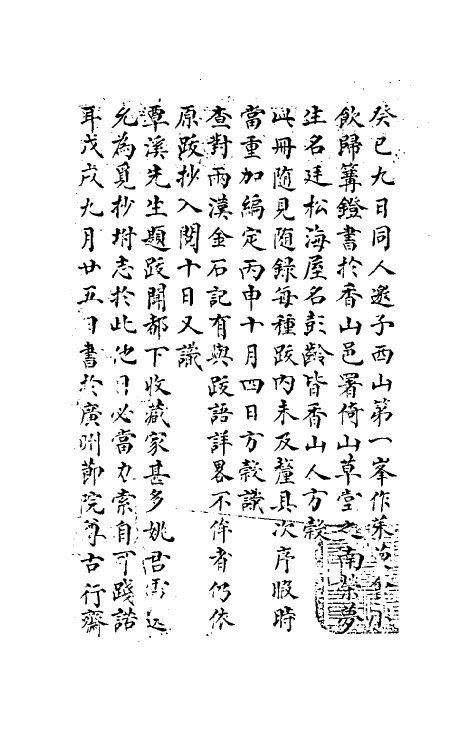 癸巳九日同人邀予西山第一峯作茱萸
飲歸篝鐙書於香山邑署倚山草堂之南榮夢
生名廷松海屋名彭齡皆香山人方穀
此冊隨見隨錄每種跋內未及釐具次序暇時
當重加編定丙申十月四日方穀識
查對兩漢金石記有與跋語詳畧不侔者仍依
原跋抄入閱十日又識
覃溪先生題跋聞都下收藏家甚多姚君
允為覓抄坿志於此他日必當力索自可踐諾
耳戊戌九月廿五日書於廣州節院尊古行齋